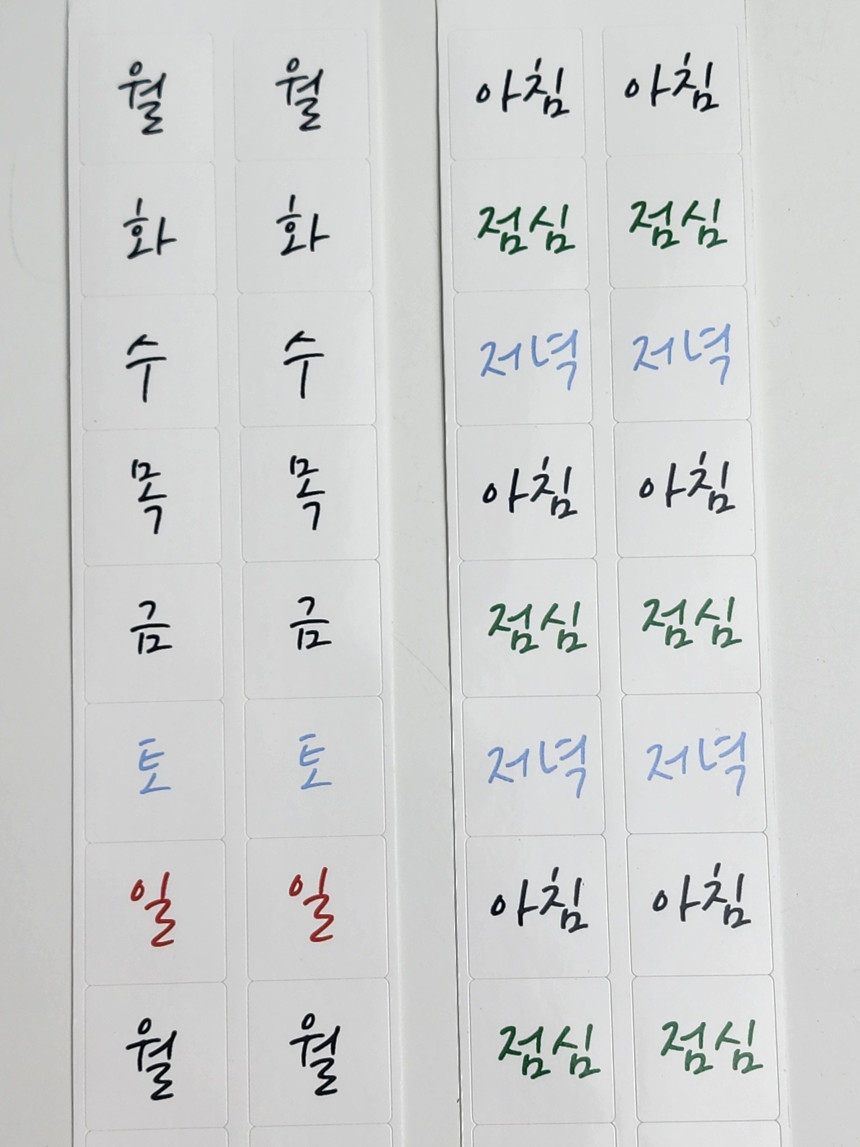 월 월 아침 아침
화 화 점심 점심
수 수 저녁 저녁
목 목 아침 아침
금 금 점심 점심
토 토 저녁 저녁
일 일 아침 아침
월 월 점심 점심